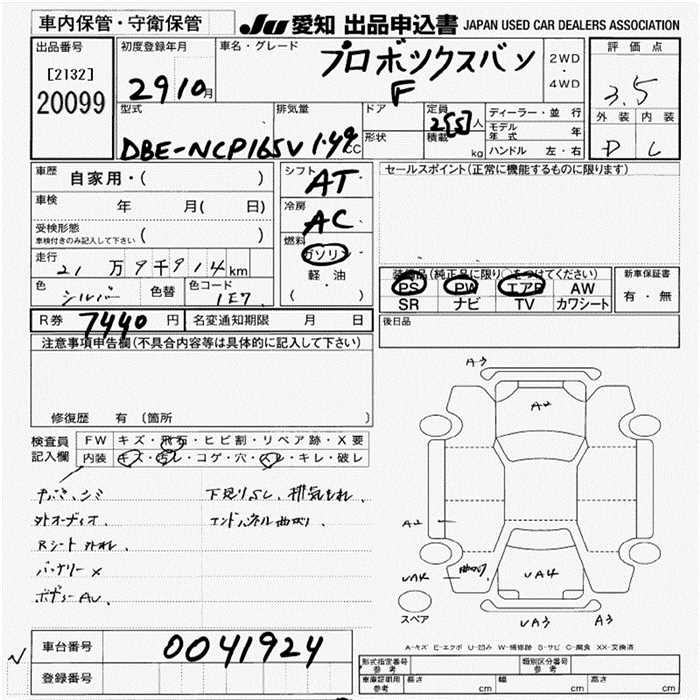 車内保管・守衛保管 JU 愛知 出品申込書 JAPAN USED CAR DEALERS ASSOCIATION
出品番号 [2132] 20099
初度登録年月 29 10月
車名・グレード プロボックスバン F
2WD・4WD
評価点 3.5
外装 内装
D C
型式 DBE-NCP165V
排気量 1.49cc
ドア
形状
定員 2[5]人
積載 kg
ディーラー・並行
モデル年式 年
ハンドル 左・右
車歴 自家用・( )
車検 年 月( 日)
受検形態
車検付きのみ記入して下さい ( )
走行 21万9千914km
色 シルバー 色替 色コード 1E7
シフト AT
冷房 AC
燃料 ガソリン
軽・油
( )
セールスポイント(正常に機能するものに限ります)
装備品(純正品に限り○をつけてください)
PS PW エアB AW
SR ナビ TV カワシート
新車保証書
有・無
R券 7440円 名変通知期限 月 日
後日品
注意事項申告欄(不具合内容等は具体的に記入して下さい)
修復歴 有 (箇所
検査員記入欄
FW キズ・飛石・ヒビ割・リペア跡・X要
内装 キズ・汚レ・コゲ・穴・スレ・キレ・破レ
外オーディオ、
Rシート外れ、
バッテリーX
ボディーAU、
下廻りSし、排気もれ、
エンドパネル曲がり、
A3
A2
A2
UA4
曲がり
UA4
UA3
A3
スペア
A-キズ E-エクボ U-凹み W-補修跡 S-サビ C-腐食 XX-交換済
車台番号 0041924
登録番号
形式指定番号 参考
類別区分番号 参考
車庫証明用 参考 長さ cm 幅 cm 高さ cm